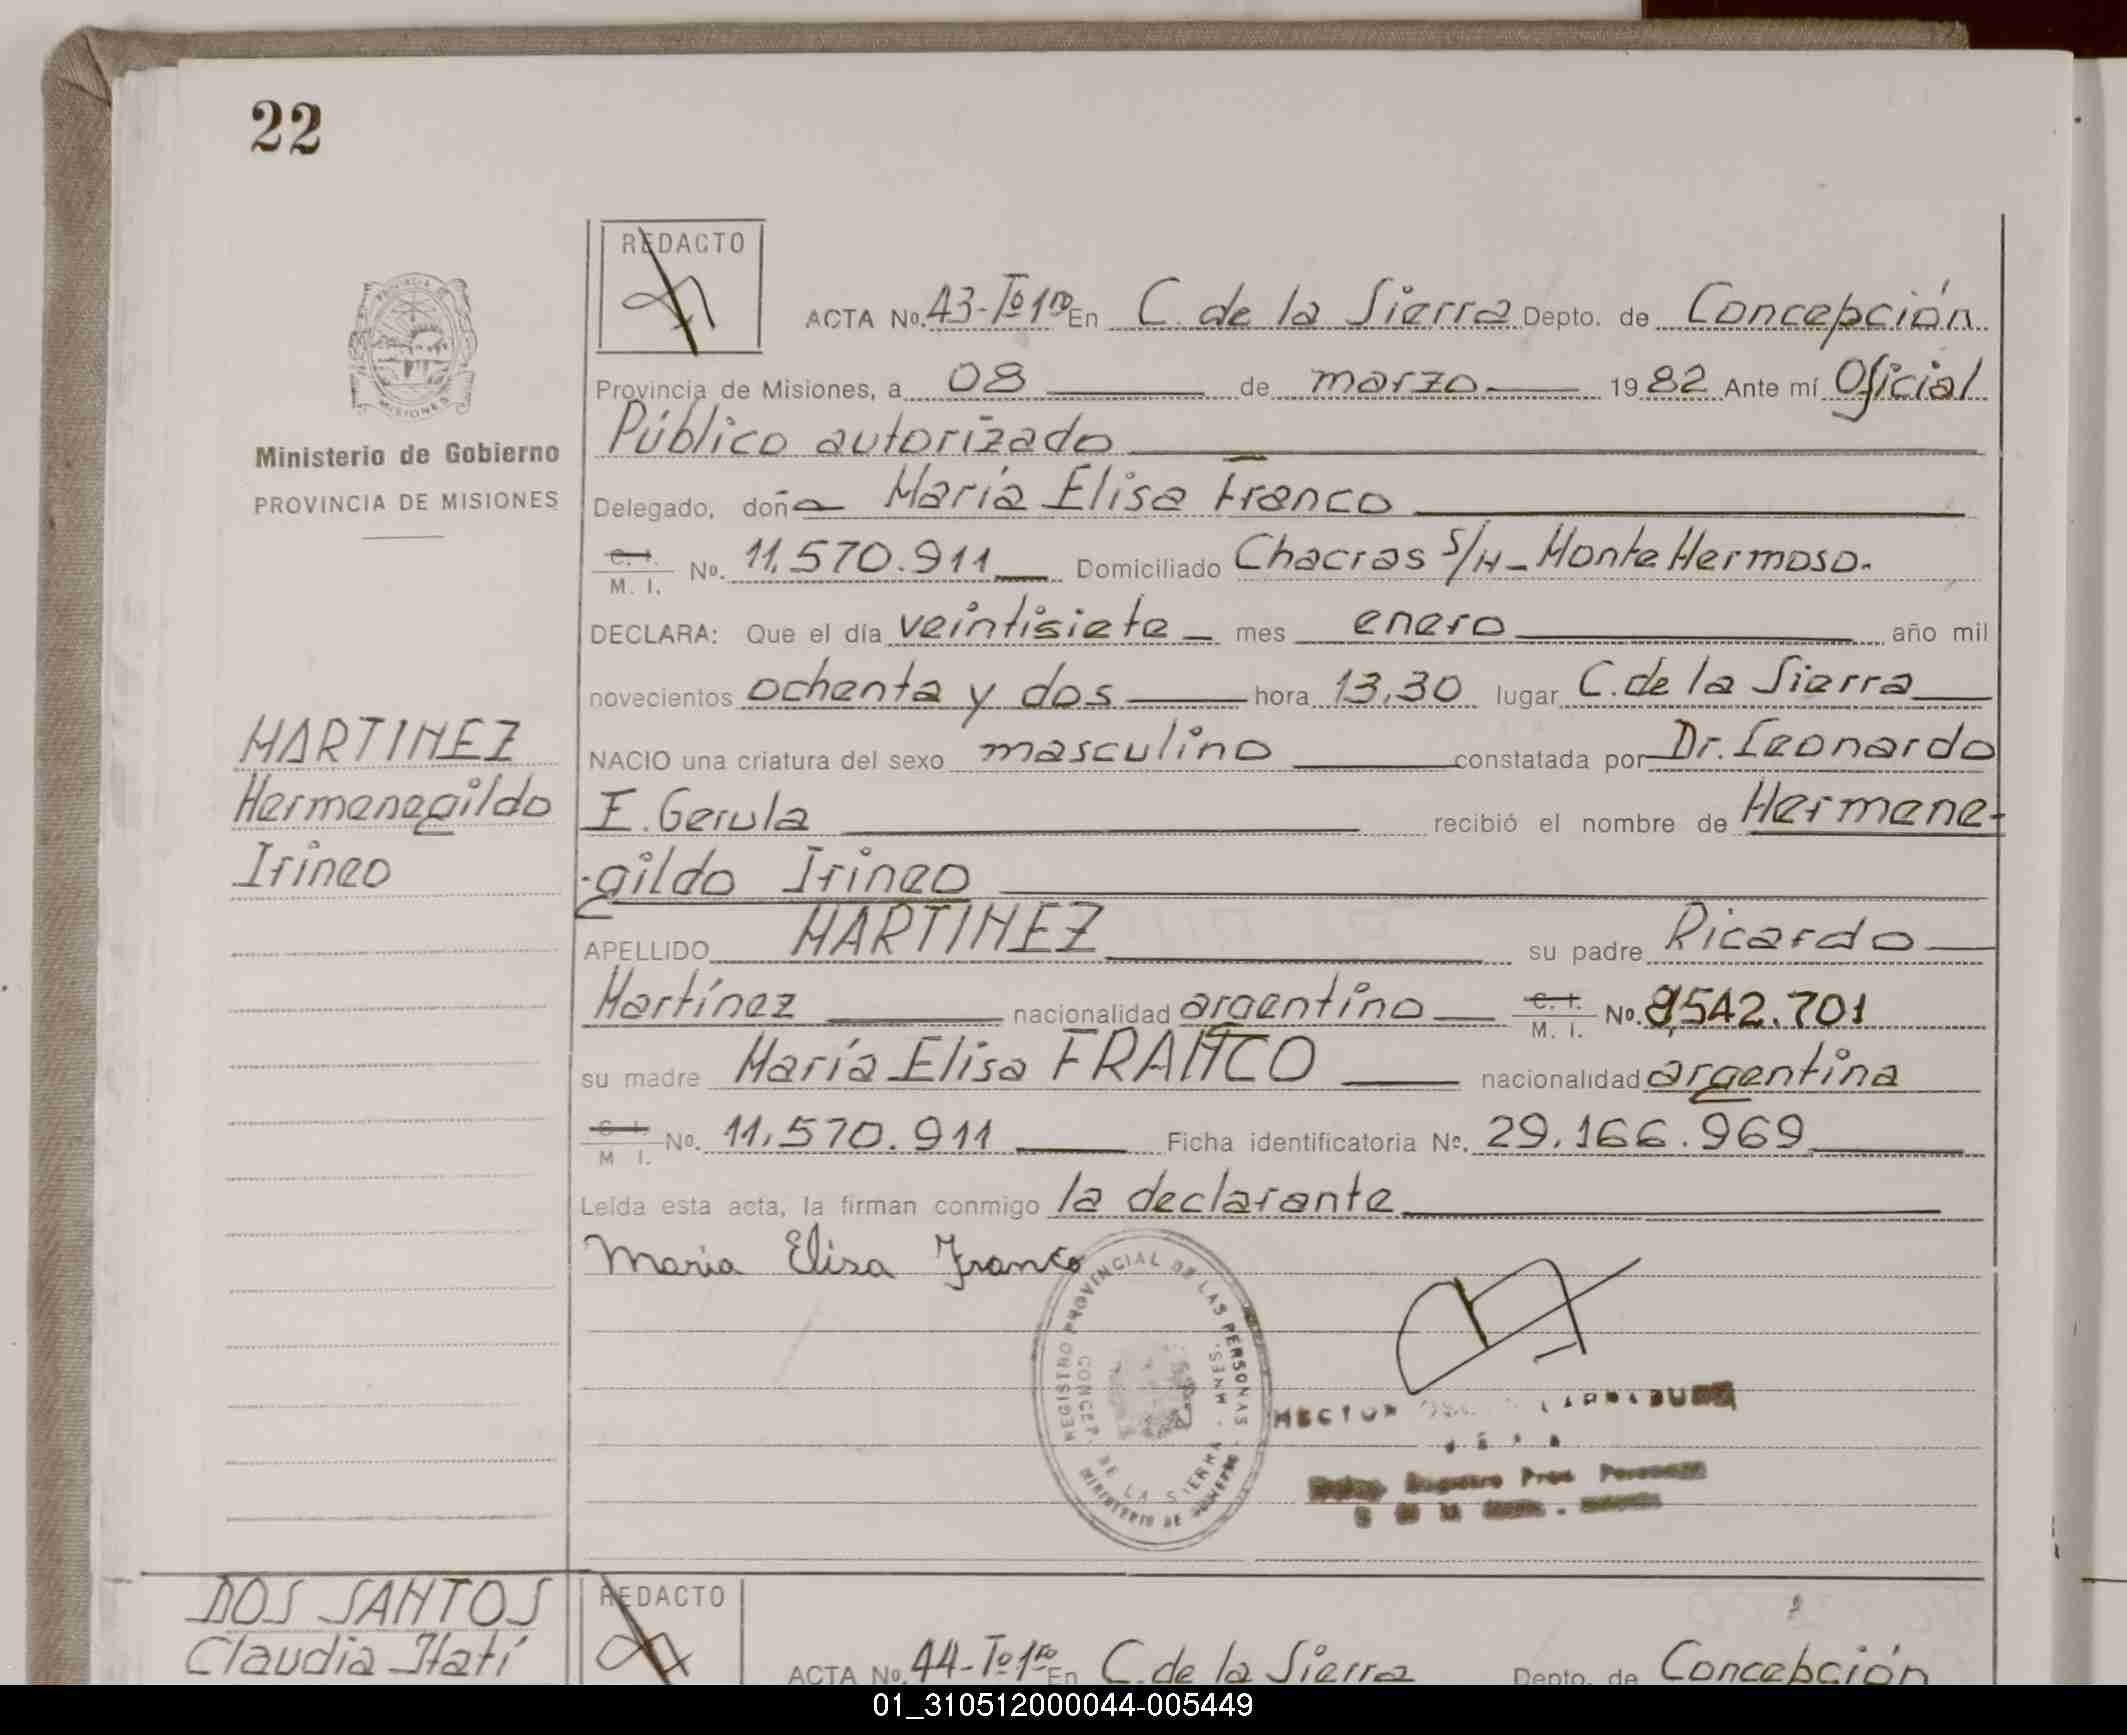 22
REDACTO
ACTA No. 43-Tº 1ro En C. de la Sierra Depto. de Concepción
Provincia de Misiones, a 08 de marzo 1982 Ante mí Oficial
Público autorizado
Ministerio de Gobierno
PROVINCIA DE MISIONES
Delegado, doña María Elisa Franco
C. I.
M. I. No. 11.570.911 Domiciliado Chacras S/N - Monte Hermoso.
DECLARA: Que el día veintisiete mes enero año mil
novecientos ochenta y dos hora 13,30 lugar C. de la Sierra
MARTINEZ
Hermenegildo
Irineo
NACIO una criatura del sexo masculino constatada por Dr. Leonardo
E. Gerula recibió el nombre de Hermene-
-gildo Irineo
APELLIDO MARTINEZ su padre Ricardo
Martínez nacionalidad argentino C. I. M. I. No. 542.701
su madre María Elisa FRANCO nacionalidad argentina
C. I.
M I. No. 11.570.911 Ficha identificatoria No. 29.166.969
Leída esta acta, la firman conmigo la declarante
Maria Elisa Franco
REGISTRO PROVINCIAL DE LAS PERSONAS
CONCEP. DE LA SIERRA - MNES.
MINISTERIO DE GOBIERNO
HECTOR
DOS SANTOS
Claudia Itatí
REDACTO
ACTA No. 44-Tº 1ro En C. de la Sierra Depto. de Concepción
01_310512000044-005449